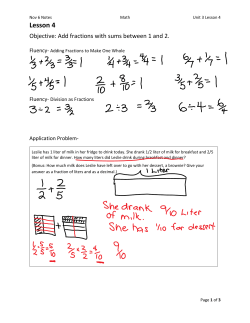 Nov 6 Notes Math Unit 4 Lesson 4
Lesson 4
Objective: Add fractions with sums between 1 and 2.
Fluency- Adding Fractions to Make One Whole
1/3 + 2/3 = 3/3 = 1 1/4 + 3/4 = 4/4 = 1 6/7 + 1/7 = 1
1/5 + 4/5 = 1 2/10 + 8/10 = 1 3/5 + 2/5 = 1
Fluency- Division as Fractions
3÷2 = 3/2 2÷3 = 2/3 6÷4 = 6/4
Application Problem-
Leslie has 1 liter of milk in her fridge to drink today. She drank 1/2 liter of milk for breakfast and 2/5
liter of milk for dinner. How many liters did Leslie drink during breakfast and dinner?
(Bonus: How much milk does Leslie have left over to go with her dessert, a brownie? Give your
answer as a fraction of liters and as a decimal.)
1 Liter
1/2 + 2/5
She drank 9/10 Liter
of milk.
She has 1/10 for dessert
+
1/2 × 5/5 = 5/10 2/5 × 2/2 = 4/10 9/10
Page 1 of 3